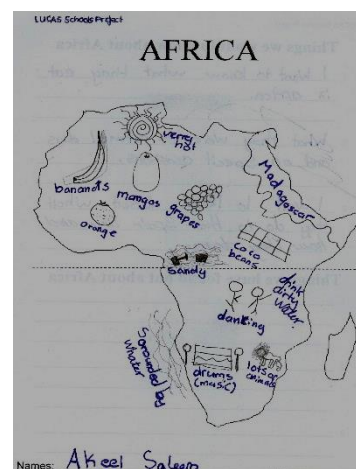 LUCAS Schools Project
AFRICA
verrey hot
bananas
mangos
grapes
orange
Madagascar
coco
beans
sandy
drink
dirty
water
dancking
Sorounded by
whater
drums
(music)
lots of
animals
Names: Akeel Saleem